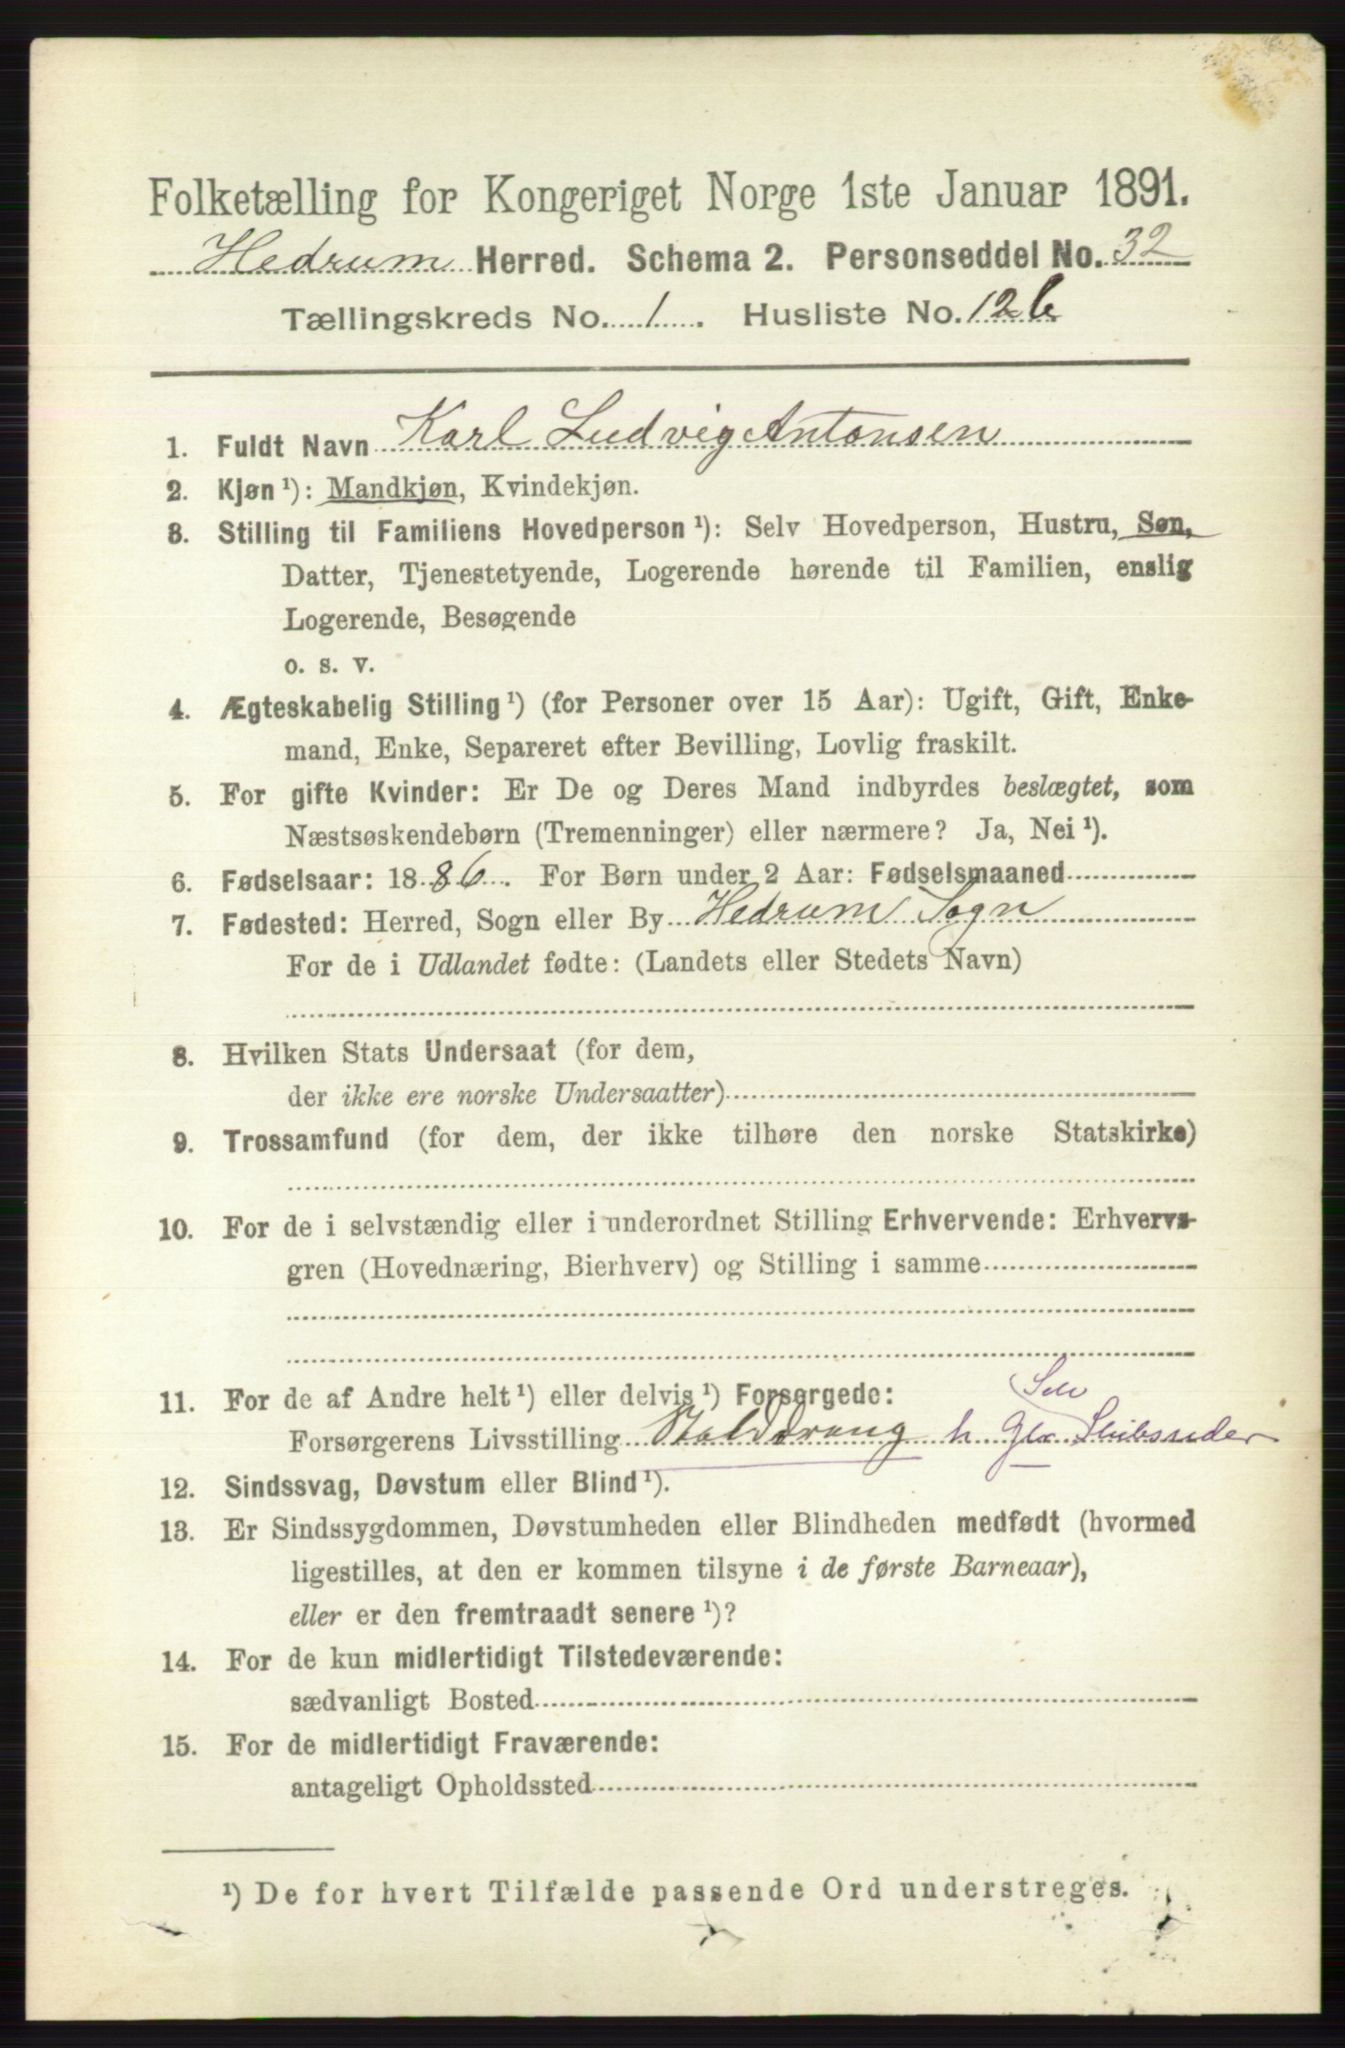 Folketælling for Kongeriget Norge 1ste Januar 1891.
Hedrum Herred. Schema 2. Personseddel No. 32
Tællingskreds No. 1. Husliste No. 126
1. Fuldt Navn Karl Ludvig Antonsen
2. Kjøn ¹): Mandkjøn, Kvindekjøn.
3. Stilling til Familiens Hovedperson ¹): Selv Hovedperson, Hustru, Søn,
Datter, Tjenestetyende, Logerende hørende til Familien, enslig
Logerende, Besøgende
o. s. v.
4. Ægteskabelig Stilling ¹) (for Personer over 15 Aar): Ugift, Gift, Enke-
mand, Enke, Separeret efter Bevilling, Lovlig fraskilt.
5. For gifte Kvinder: Er De og Deres Mand indbyrdes beslægtet, som
Næstsøskendebørn (Tremenninger) eller nærmere? Ja, Nei ¹).
6. Fødselsaar: 1886. For Børn under 2 Aar: Fødselsmaaned
7. Fødested: Herred, Sogn eller By Hedrum Sogn
For de i Udlandet fødte: (Landets eller Stedets Navn)
8. Hvilken Stats Undersaat (for dem,
der ikke ere norske Undersaatter)
9. Trossamfund (for dem, der ikke tilhøre den norske Statskirke)
10. For de i selvstændig eller i underordnet Stilling Erhvervende: Erhvervs-
gren (Hovednæring, Bierhverv) og Stilling i samme
11. For de af Andre helt ¹) eller delvis ¹) Forsørgede:
Forsørgerens Livsstilling Stalddreng h
12. Sindssvag, Døvstum eller Blind ¹).
13. Er Sindssygdommen, Døvstumheden eller Blindheden medfødt (hvormed
ligestilles, at den er kommen tilsyne i de første Barneaar),
eller er den fremtraadt senere ¹)?
14. For de kun midlertidigt Tilstedeværende:
sædvanligt Bosted
15. For de midlertidigt Fraværende:
antageligt Opholdssted
¹) De for hvert Tilfælde passende Ord understreges.